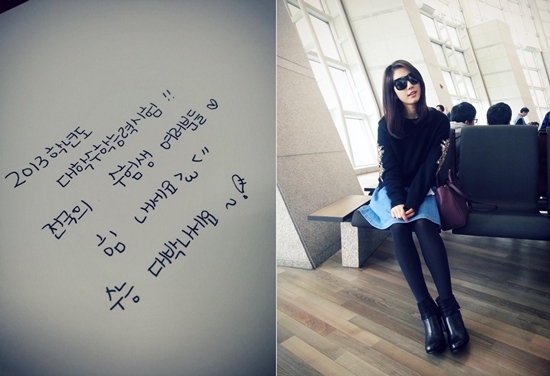 2013학년도
대학수학능력시험 !!
전국의 수험생 여러분들 ♡
힘 내세요 >3<"
대박